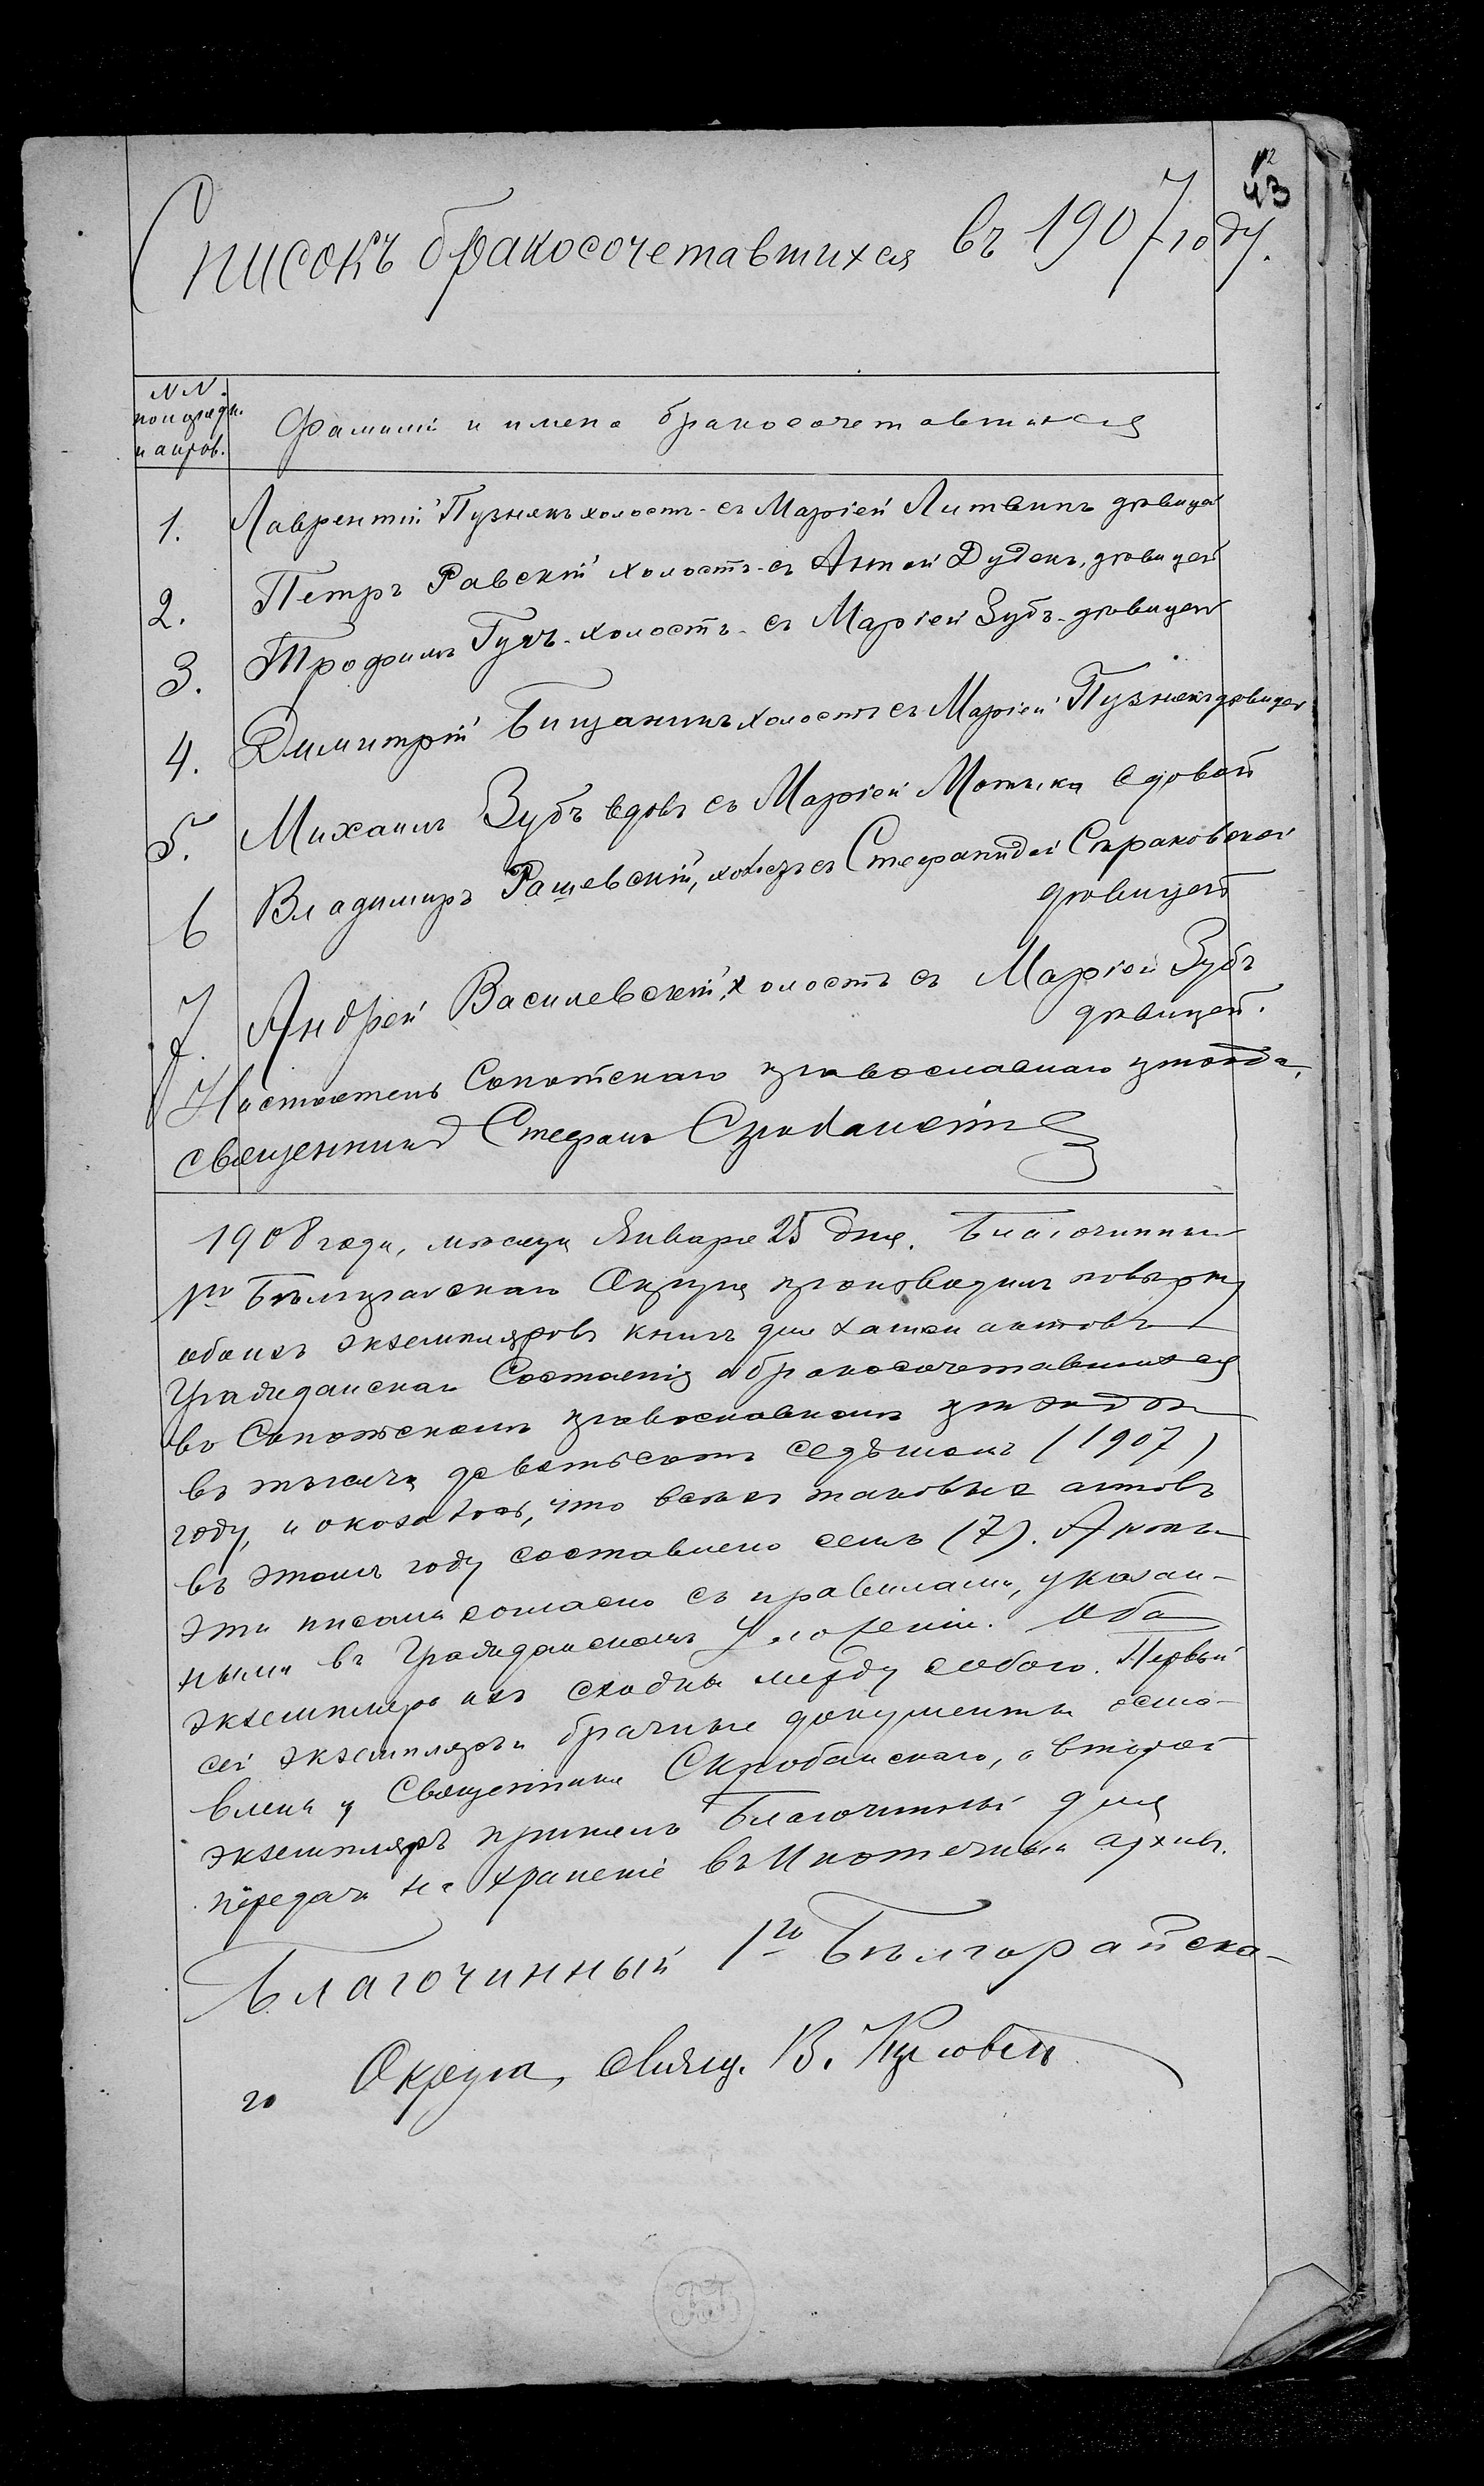 12
43
Списокъ бракосочетавшихся въ 1907 году.
NN.
по порядк.
Фамиліи и имена бракосочетавшихся
1. Лаврентій Пузнякъ холостъ - съ Маріей Литвинъ дѣвицей
2. Петръ Равскій холостъ - съ Анной Дудекъ, дѣвицей
3. Трофимъ Гухъ - холостъ - съ Маріей Зубъ - дѣвицей
4. Димитрій Бищанинъ холостъ съ Маріей Пузнякъ дѣвицей
5. Михаилъ Зубъ вдовъ съ Маріей Мотыка вдовой
6 Владимиръ Рашевскій, холостъ съ Стефанидой Страковской
дѣвицей
7. Андрей Василевскій, холостъ съ Маріей Зубъ
дѣвицей.
Настоятель Сопотскаго православнаго прихода,
священникъ Стефанъ Скробанскій
1908 года, мѣсяца Января 25 дня. Благочинный
1го Бѣлгорайскаго Округа производилъ повѣрку
обоихъ экземпляровъ книгъ для записи актовъ
Гражданскаго Состоянія о бракосочетавшихся
въ Сопотскомъ православномъ приходѣ
въ тысяча девятьсотъ седьмомъ (1907)
году, и оказалось, что всѣхъ таковыхъ актовъ
въ этомъ году составлено семь (7). Акты
эти писаны согласно съ правилами, указан-
ными въ Гражданскомъ Уложеніи. Оба
экземпляра ихъ сходны между собою. Первый
сей экземпляръ и брачные документы оста-
влены у Священника Скробанскаго, а второй
экземпляръ принялъ Благочинный для
передачи на храненіе въ Ипотечный архивъ.
Благочинный 1го Бѣлгорайска-
го Округа, свящ. В.